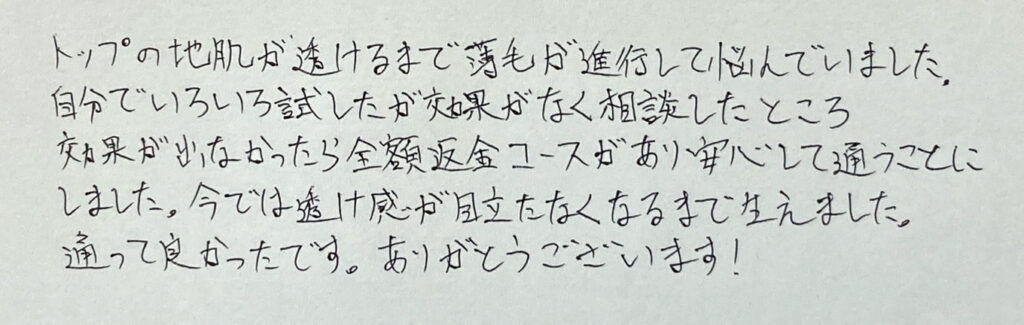 トップの地肌が透けるまで薄毛が進行して悩んでいました。
自分でいろいろ試したが効果がなく相談したところ
効果が出なかったら全額返金コースがあり安心して通うことに
しました。今では透け感が目立たなくなるまで生えました。
通って良かったです。ありがとうございます!